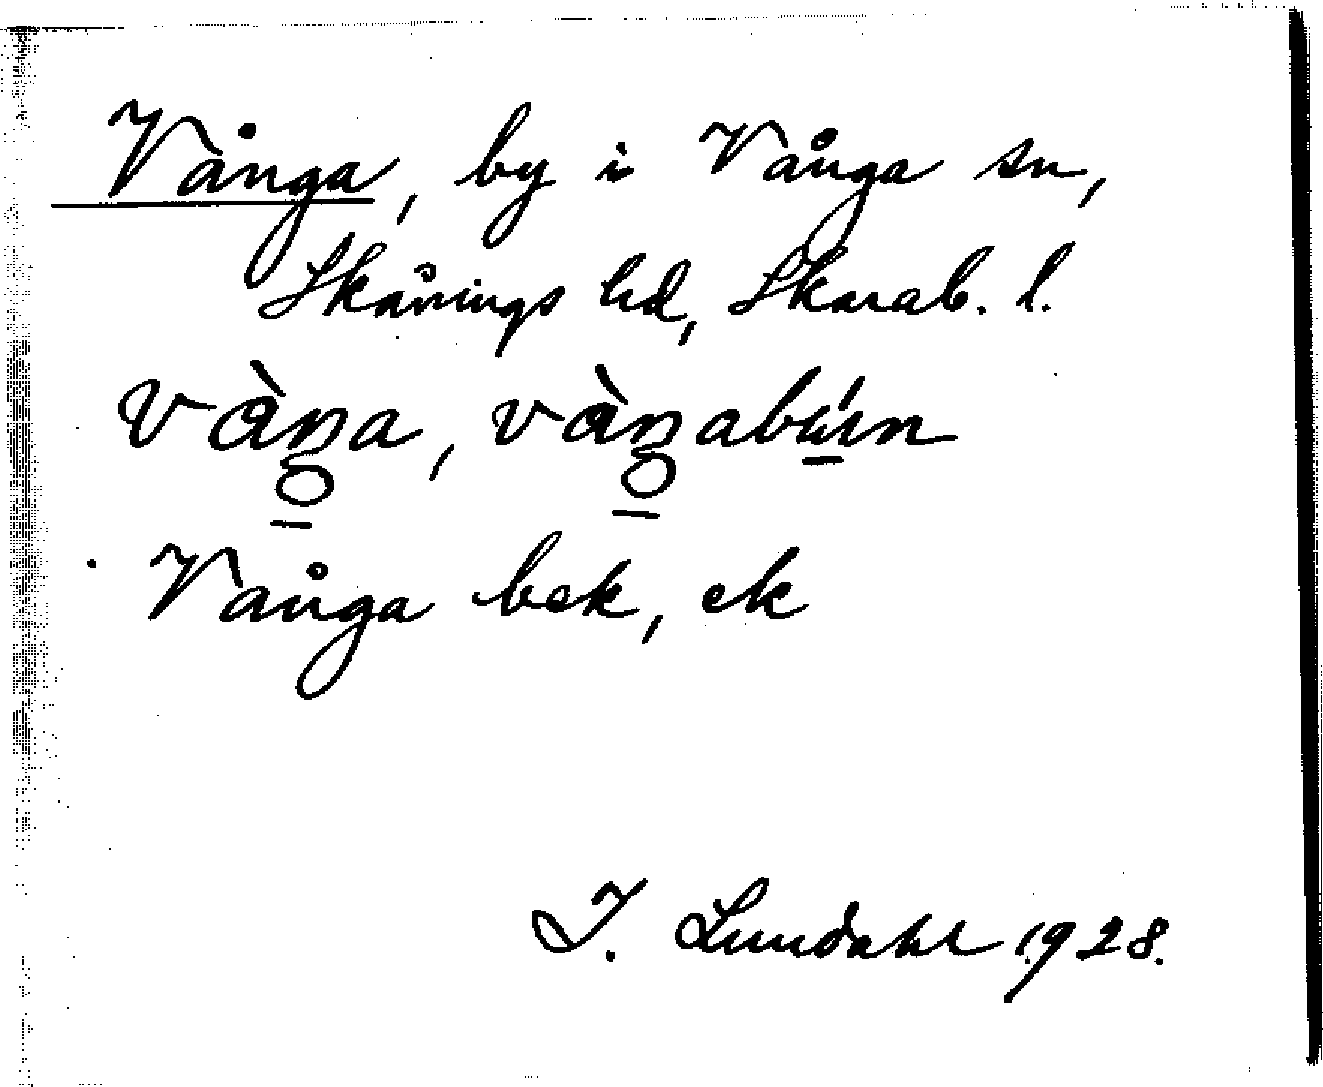 Vånga, by i Vånga sn,
Skånings hd, Skarab. l.
vàŋa, vàŋabún
Vånga bek, ek
I. Lundahl 1928.